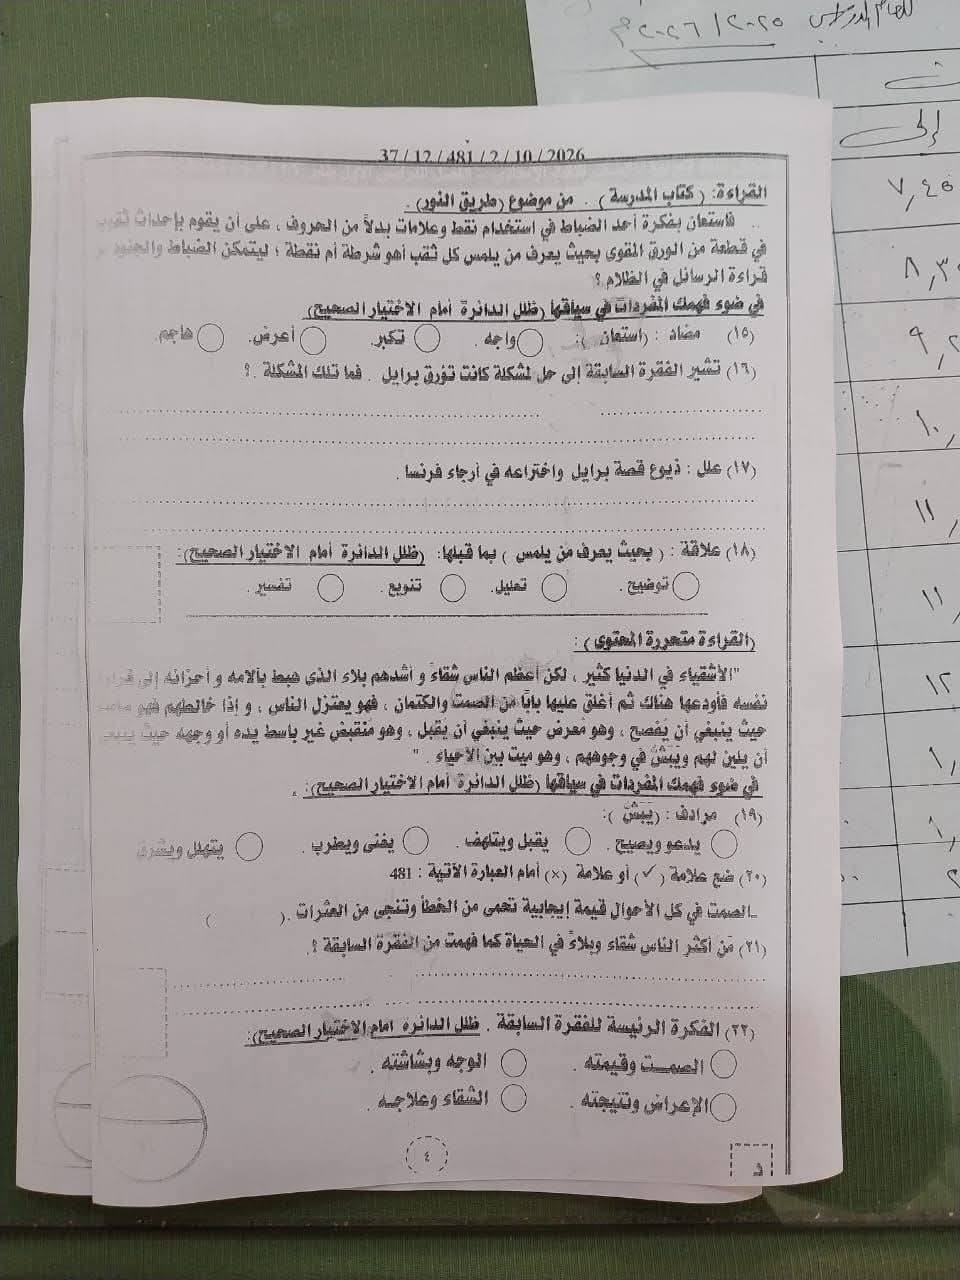 للعام الدراسي ٢٠٢٥ / ٢٠٢٦م
إلى
٧,٤٥
37 / 12 / 481 / 2 / 10 / 2026
القراءة: ( كتاب المدرسة ) . من موضوع (طريق النور) .
.. فاستعان بفكرة أحد الضباط في استخدام نقط وعلامات بدلاً من الحروف ، على أن يقوم بإحداث
في قطعة من الورق المقوى بحيث يعرف من يلمس كل ثقب أهو شرطة أم نقطة ؛ ليتمكن الضباط والجنود
قراءة الرسائل في الظلام ؟
في ضوء فهمك المفردات في سياقها (ظلل الدائرة أمام الاختيار الصحيح)
(١٥) مضاد : (استعان ): واجه. تكبر. أعرض. هاجم.
(١٦) تشير الفقرة السابقة إلى حل لمشكلة كانت تؤرق برايل . فما تلك المشكلة . ؟
(١٧) علل : ذيوع قصة برايل واختراعه في أرجاء فرنسا .
(١٨) علاقة : ( بحيث يعرف من يلمس ) بما قبلها: (ظلل الدائرة أمام الاختيار الصحيح):
توضيح. تعليل. تنويع. تفسير.
(القراءة متحررة المحتوى) :
"الأشقياء في الدنيا كثير ، لكن أعظم الناس شقاءً و أشدهم بلاء الذي هبط بآلامه و أحزانه إلى
نفسه فأودعها هناك ثم أغلق عليها بابًا من الصمت والكتمان ، فهو يعتزل الناس ، و إذا خالطهم فهو
حيث ينبغي أن يُفصح ، وهو مُعرض حيث ينبغي أن يُقبل ، وهو مُنقبض غير باسط يده أو وجهه حيث
أن يلين لهم ويَبَشَّ في وجوههم ، وهو ميت بين الأحياء . "
في ضوء فهمك المفردات في سياقها (ظلل الدائرة أمام الاختيار الصحيح):
(١٩) مرادف : (يَبَشَّ ):
يدعو ويصيح. يقبل ويتلهف. يغنى ويطرب. يتهلل ويشرق
(٢٠) ضع علامة (✓) أو علامة (×) أمام العبارة الآتية : 481
ـ الصمت في كل الأحوال قيمة إيجابية تحمى من الخطأ وتنجى من العثرات . ( )
(٢١) مَن أكثر الناس شقاء وبلاءً في الحياة كما فهمت من الفقرة السابقة ؟.
(٢٢) الفكرة الرئيسة للفقرة السابقة . ظلل الدائرة أمام الاختيار الصحيح):
الصمت وقيمته . الوجه وبشاشته .
الإعراض ونتيجته . الشقاء وعلاجه .
٤